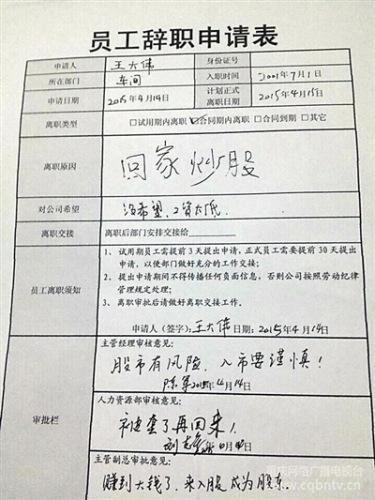 员工辞职申请表
申请人 王大伟 身份证号
所在部门 车间 入职时间 2005年7月1日
申请日期 2015年4月14日 计划正式离职日期 2015年4月15日
离职类型 □试用期内离职 ☑合同期内离职 □合同到期 □其它
离职原因 回家炒股
对公司希望 没希望,工资太低.
离职交接 离职后部门安排交接给
员工离职须知 1、试用期员工需提前3天提出申请,正式员工需要提前30天提出
申请,以便部门做好充分的工作交接;
2、提出申请期间不得传播任何负面信息,否则公司按照劳动纪律
管理规定处理;
3、离职审批后请做好离职交接工作。
申请人(签字):王大伟 日期:2015年4月14日
审批栏
主管经理审核意见:
股市有风险,入市要谨慎!
陈 2015年4月14日
人力资源部审核意见:
被套了再回来!
刘
主管副总审批意见:
赚到大钱了,来入股,成为股东.
重庆网络广播电视台
www.cqbntv.cn